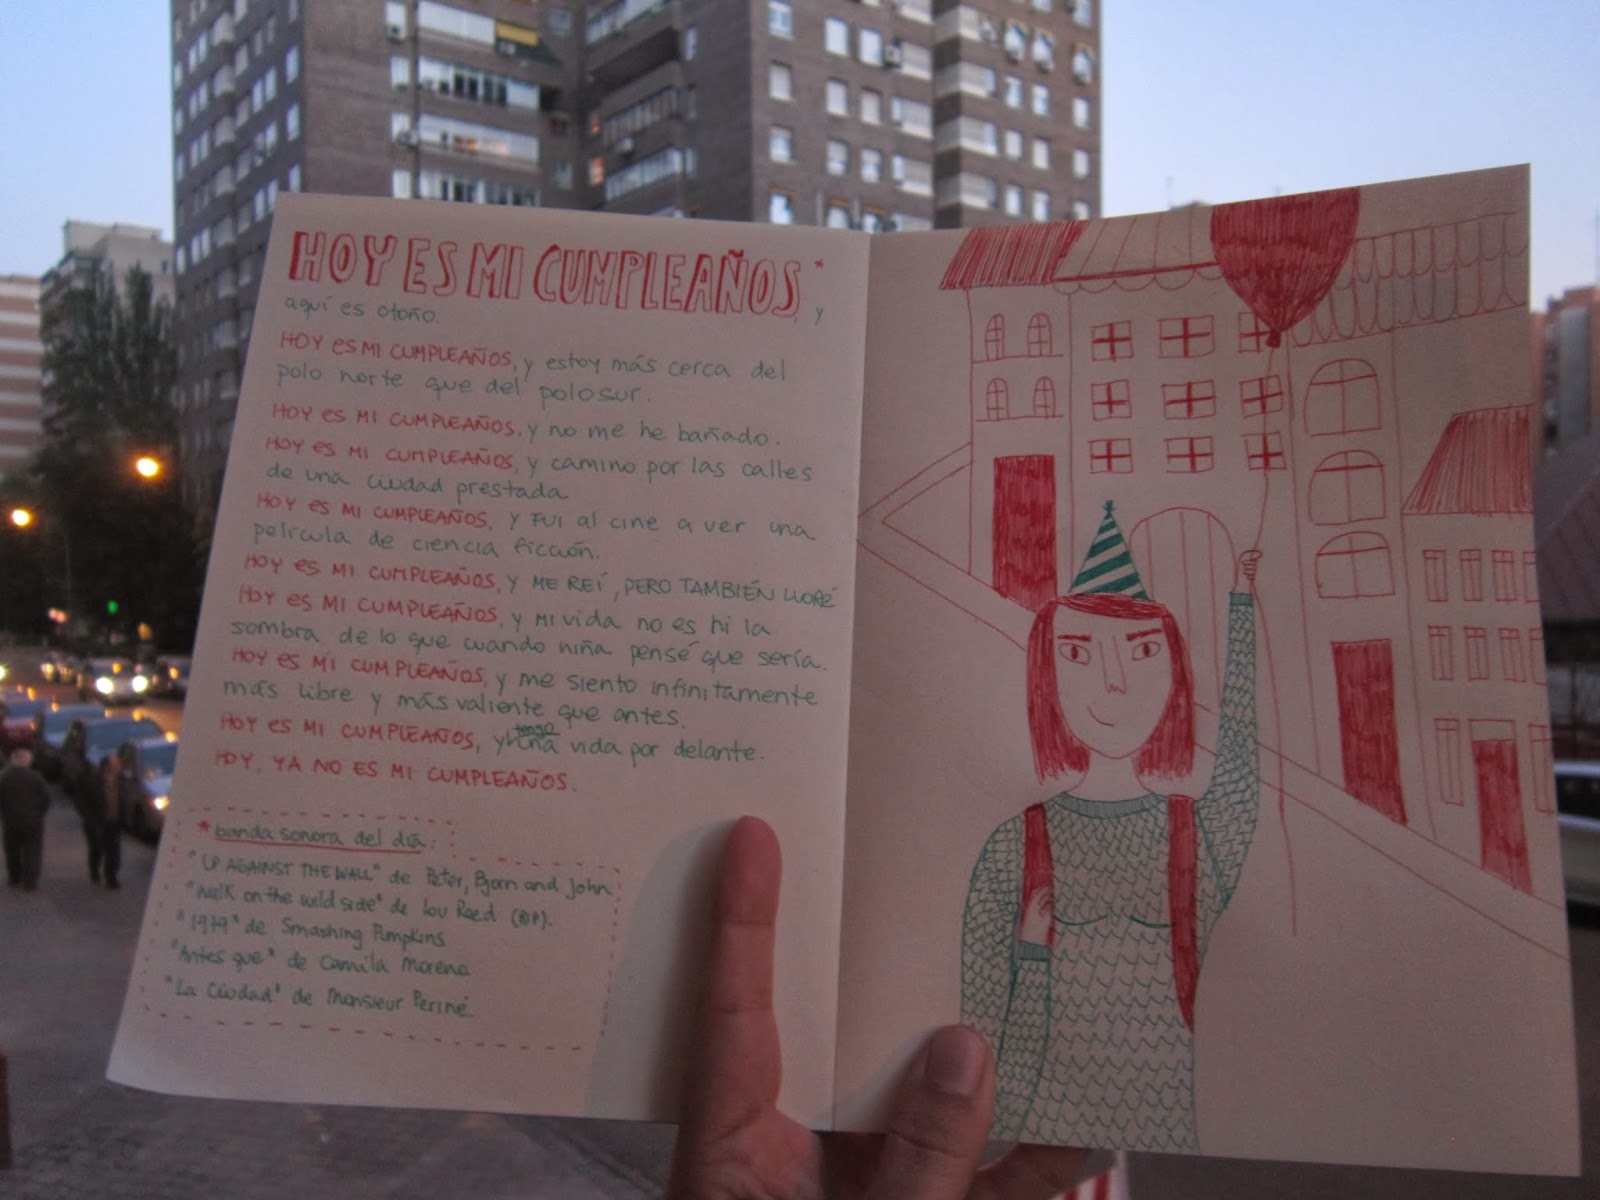 HOY ES MI CUMPLEAÑOS*, y
aquí es otoño.
HOY es MI CUMPLEAÑOS, y estoy más cerca del
polo norte que del polo sur.
HOY es MI CUMPLEAÑOS, y no me he bañado.
HOY es MI CUMPLEAÑOS, y camino por las calles
de una ciudad prestada.
HOY es MI CUMPLEAÑOS, y FUI al cine a ver una
película de ciencia ficción.
HOY es MI CUMPLEAÑOS, y ME REÍ, PERO TAMBIÉN LLORÉ
HOY es MI CUMPLEAÑOS, y MI vida no es ni la
sombra de lo que cuando niña pensé que sería.
HOY es MI CUMPLEAÑOS, y me siento infinitamente
más libre y más valiente que antes.
HOY es MI CUMPLEAÑOS, y tengo una vida por delante.
HOY, YA NO ES MI CUMPLEAÑOS.
* banda sonora del día:
"UP AGAINST THE WALL" de Peter, Bjorn and John
"Walk on the wild side" de Lou Reed (RIP).
"1979" de Smashing Pumpkins
"Antes que" de Camila Moreno
"La Ciudad" de Monsieur Periné.